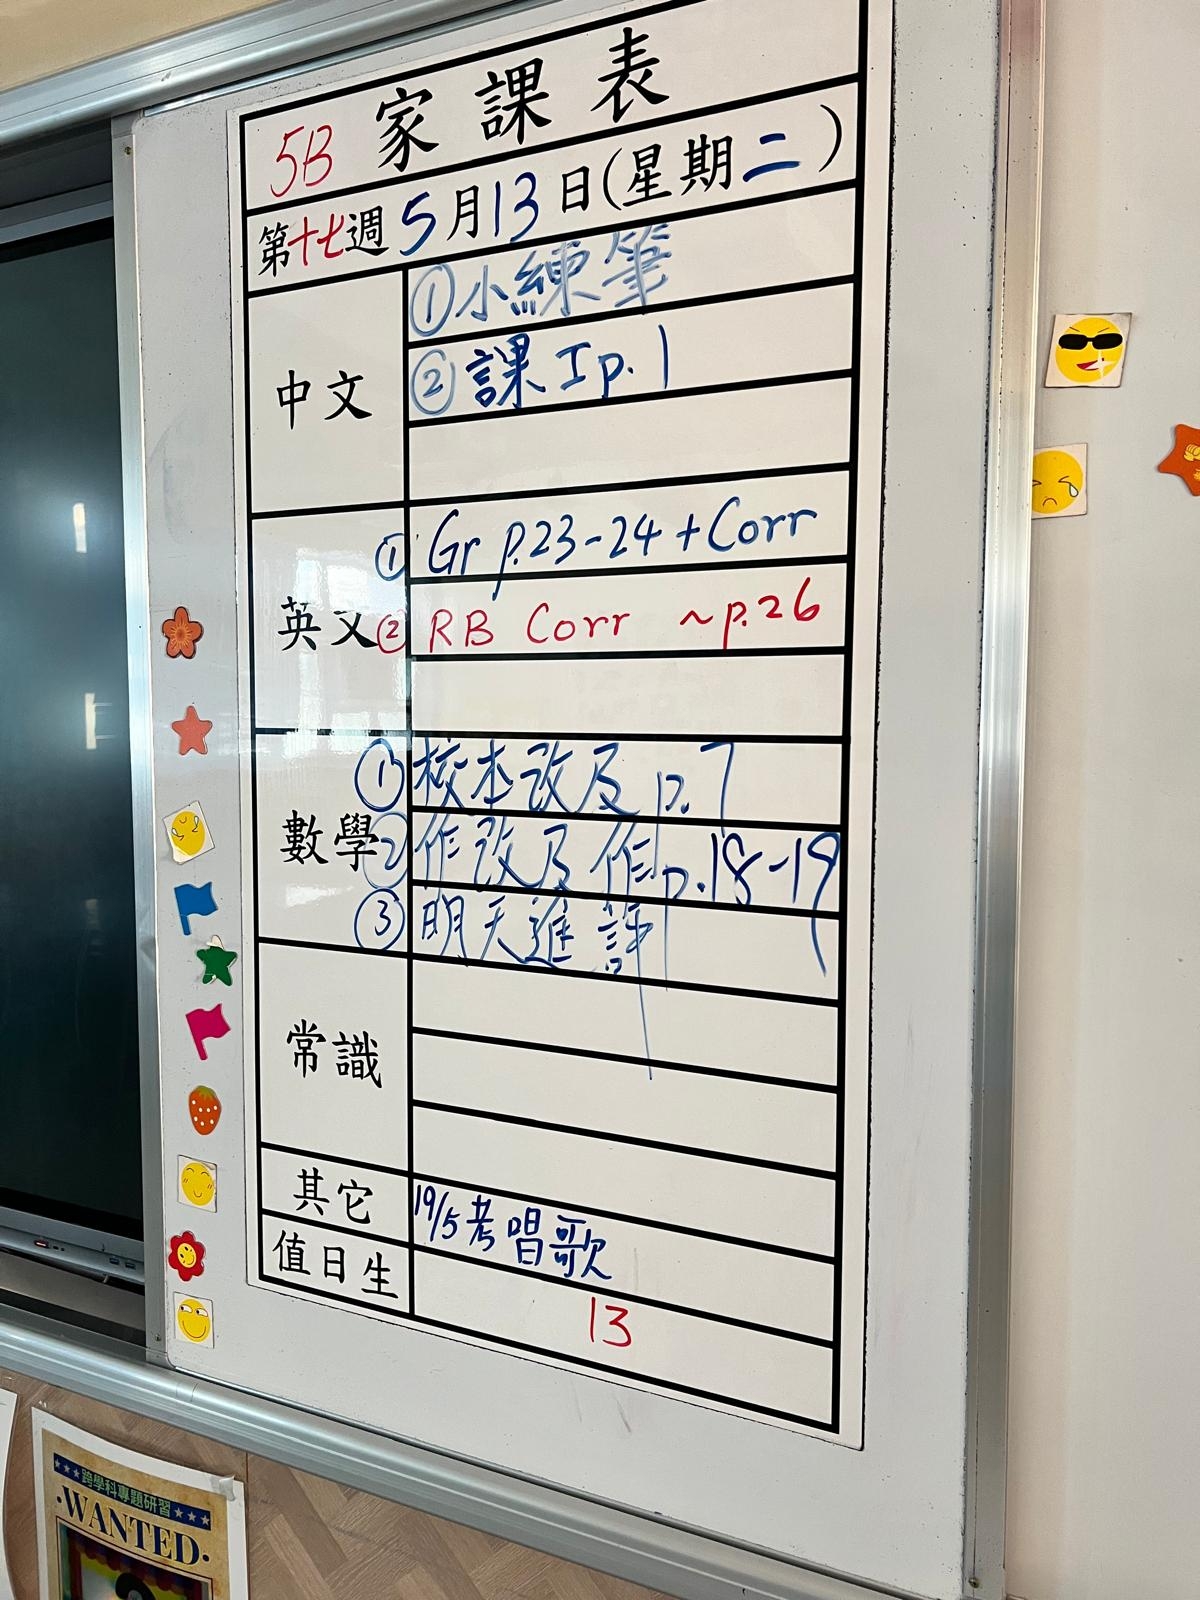 5B 家課表
第十七週 5月13日(星期二)
中文
①小練筆
②課工p.1
英文
① Gr p.23-24 + Corr
② RB Corr ~p.26
數學
①校本改及p.7
②作改及作p.18-19
③明天進評
常識
其它
19/5考唱歌
值日生
13
★★★跨學科專題研習★★★
·WANTED·